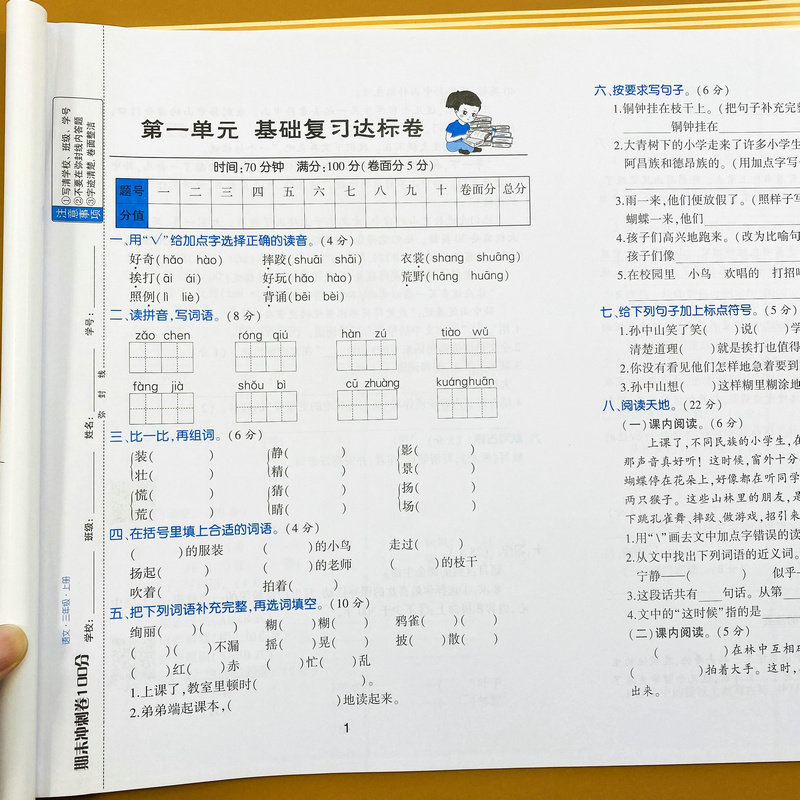 ①写清学校、班级、学号
②不要在弥封线内答题
③字迹清楚，卷面整洁
注意事项
学号：
姓名：
班级：
学校：
弥封线
语文·三年级·上册
期末冲刺卷100分
第一单元 基础复习达标卷
时间:70分钟 满分:100分(卷面5分)
题号 一 二 三 四 五 六 七 八 九 十 卷面分 总分
分值
一、用“√”给加点字选择正确的读音。(4分)
好奇(hǎo hào) 摔跤(shuāi shāi) 衣裳(shang shuāng)
挨打(āi ái) 好玩(hǎo hào) 荒野(hāng huāng)
照例(lì liè) 背诵(bēi bèi)
二、读拼音,写词语。(8分)
zǎo chen róng qiú hàn zú tiào wǔ
fàng jià shǒu bì cū zhuàng kuánghuān
三、比一比,再组词。(6分)
装( ) 静( ) 影( )
壮( ) 精( ) 景( )
慌( ) 猜( ) 扬( )
荒( ) 睛( ) 场( )
四、在括号里填上合适的词语。(4分)
( )的服装 ( )的小鸟 走过( )
扬起( ) ( )的老师 ( )的枝干
吹着( ) 拍着( )
五、把下列词语补充完整,再选词填空。(10分)
绚丽( )( ) 糊( )糊( ) 鸦雀( )( )
( )( )不漏 摇( )晃( ) 披( )散( )
( )红( )赤 ( )忙( )乱
1.上课了,教室里顿时( )。
2.弟弟端起课本,( )地读起来。
1
六、按要求写句子。(6分)
1.铜钟挂在枝干上。(把句子补充完
铜钟挂在
2.大青树下的小学走来了许多小学生
阿昌族和德昂族的。(用加点字写一
3.雨一来,他们便放假了。(照样子写
蝴蝶一来,他们
4.孩子们高兴地跑来。(改为比喻句
孩子们像
5.在校园里 小鸟 欢唱的 打招
七、给下列句子加上标点符号。(5分)
1.孙中山笑了笑( )说( )学
清楚道理( )就是挨打也值得
2.你没有看见他们怎样地急着要到
3.孙中山想( )这样糊里糊涂地
八、阅读天地。(22分)
(一)课内阅读。(6分)
上课了,不同民族的小学生,在
那声音真好听！这时候,窗外十分
蝴蝶停在花朵上,好像都在听同学
两只猴子。这些山林里的朋友,是
下跳孔雀舞、摔跤、做游戏,招引来
1.用“\”画去文中加点字错误的读
2.从文中找出下列词语的近义词。
宁静——( ) 似乎
3.这段话共有 句话。从第
4.文中的“这时候”指的是
(二)课内阅读。(5分)
( )在林中互相
( )拍着大手。这时,
出来。